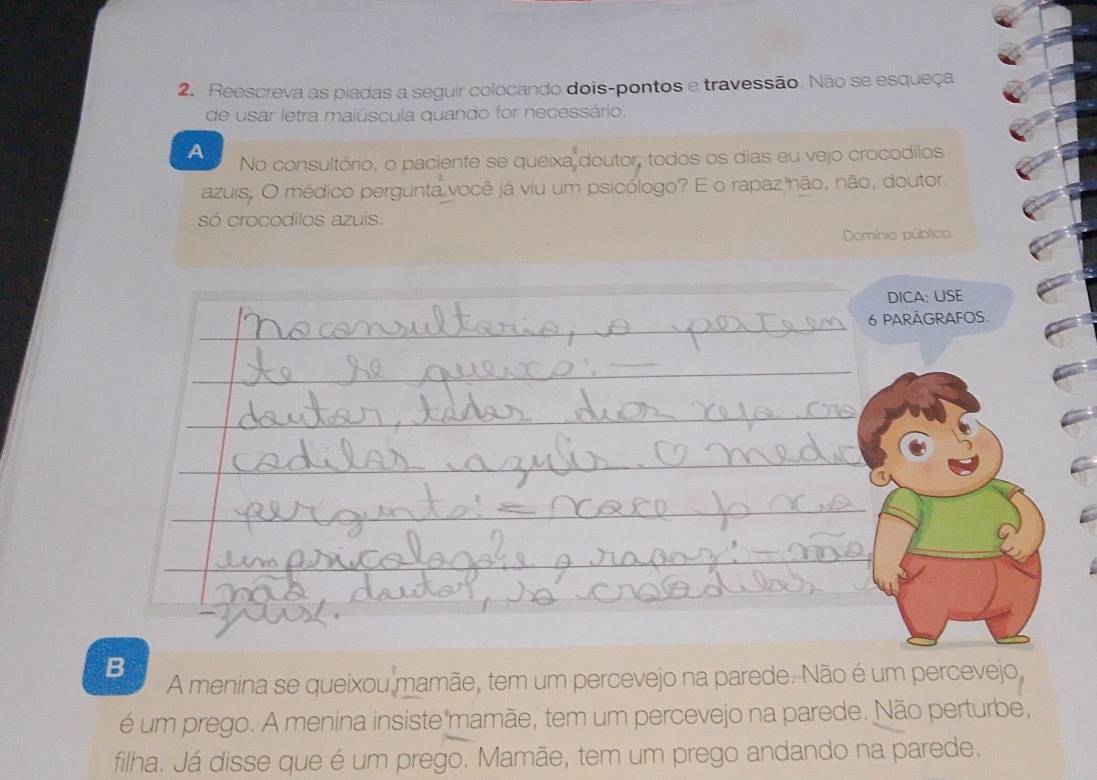 2. Reescreva as piadas a seguir colocando dois-pontos e travessão. Não se esqueça
de usar letra maiúscula quando for necessário.
A
No consultório, o paciente se queixa, doutor, todos os dias eu vejo crocodilos
azuis, O médico pergunta, você já viu um psicólogo? E o rapaz, não, não, doutor.
só crocodilos azuis.
Domínio público.
DICA: USE
6 PARÁGRAFOS.
no consultorio, o pacien
te se queixa: —
doutor, todos dias vejo cro
codilos azuis. O medic
pergunta: — voce ja viu
um psicologo? e o rapaz: — não,
não, doutor, só crocodilos a
-zuis.
B
A menina se queixou, mamãe, tem um percevejo na parede. Não é um percevejo,
é um prego. A menina insiste, mamãe, tem um percevejo na parede. Não perturbe,
filha. Já disse que é um prego. Mamãe, tem um prego andando na parede.